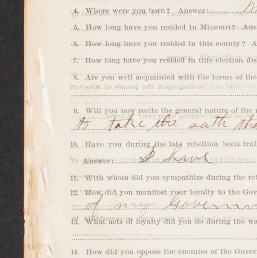 4. Where were you born? Answer:
5. How long have you resided in Missouri?
6. How long have you resided in this county?
7. How long have you resided in this election dis
8. Are you well acquainted with the terms of the
9. Will you now recite the general nature of the
to take the oath tha
10. Have you during the late rebellion been tru
Answer: I have
11. With whom did you sympathize during the re
12. How did you manifest your loyalty to the Gov
of my Govern
13. What acts of loyalty did you do during the wa
14. How did you oppose the enemies of the Gover